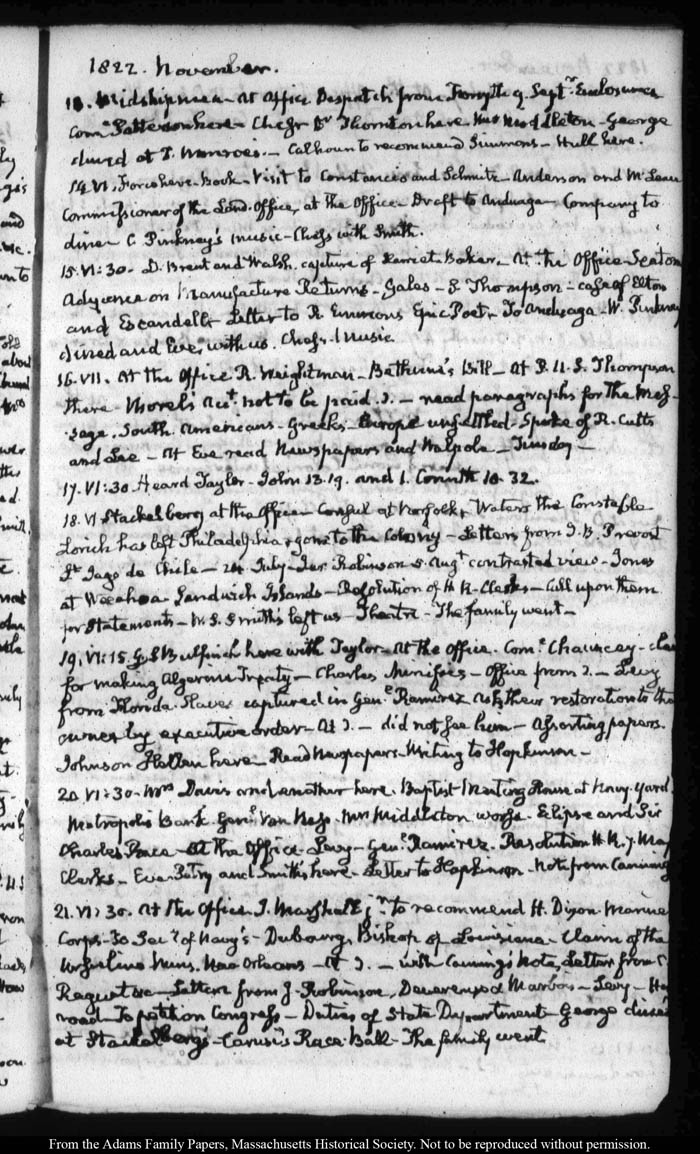 1822. November.
13. Midshipmen - At Office Despatch from Forsyth 9. Septr. Enclosures
Comr. Patterson here - Chess Dr. Thornton here. Mrs. Middleton - George
dined at T. Monroe's. - Calhoun to recommend Simmons - Hull here.
14. VI. Force here. Book - Visit to Constancio and Schmitz - Anderson and McLean
Commissioner of the Land-Office, at the Office - Draft to Anduaga - Company to
dine C. Pinkney's music - Chess with Smith.
15. VI:30. D. Brent and Walsh, capture of Harriet Baker. At the Office - Seaton
on Manufacture Returns - Gales - S. Thompson - case of Elton
and Escandell - Letter to R. Emmons Epic Poet. To Anduaga. W. Pinkney
dined and Eve, with us. Chess. Music.
16. VII. At the Office R. Weightman - Bethune's Bill - At P. U.S. Thompson
there - Morel's acct. not to be paid. - read paragraphs for the Mes-
sage. South Americans - Greeks - Europe unsettled - Spoke of R. Cutts
and Lee - At Eve read Newspapers and Walpole - Tuesday -
17. VI:30 Heard Taylor - John 13.19. and 1. Corinth 10. 32.
18. VI Stackelberg at the Office - Consul at Norfolk, Waters the Constable
Lorich has left Philadelphia, gone to the Colony - Letters from J. B. Prevost
St. Jago de Chile - 24 July - Jer. Robinson 5. Augt. contrasted view - Jones
at Woahoo Sandwich Islands - Resolution of H. R. Clerks - Call upon them
for Statements - W. S. Smith's left us - Theatre - The family went -
19. VI:15. G. S. Bulfinch here with Taylor - At the Office. Comr. Chauncey -
for making Algerine Treaty - Charles Minifies - Office from - Levy
from Florida. Slaves captured in Genl. Ramirez their restoration to the
owner by executive order - At - did not see him - Assorting papers.
Johnson Hellen here - Read Newspapers. Writing to Hopkinson -
20. VI:30. Mrs. Davis and another here. Baptist Meeting House at Navy-Yard.
Metropolis Bank. Genl. Van Ness. Mrs. Middleton worse. Eclipse and Sir
Charles Race - At the Office - Levy - Genl. Ramirez. Resolution H. R. 7. May
Clerks - Eve Petry and Smith's here - Letter to Hopkinson - Note from Canning
21. VI:30. At the Office J. Marshall jr. to recommend H. Dixon Marine
Corps - To Secy. of Navy's - Dubourg, Bishop of Louisiana - Claim of the
Ursuline Nuns. New Orleans - At - with Canning's Note, Letter from
Raguet &c - Letters from J. Robinson, Devereux & Marbois - Levy -
road To petition Congress - Duties of State Department - George dined
at Stackelberg's - Carusi's Race Ball - The family went
From the Adams Family Papers, Massachusetts Historical Society. Not to be reproduced without permission.